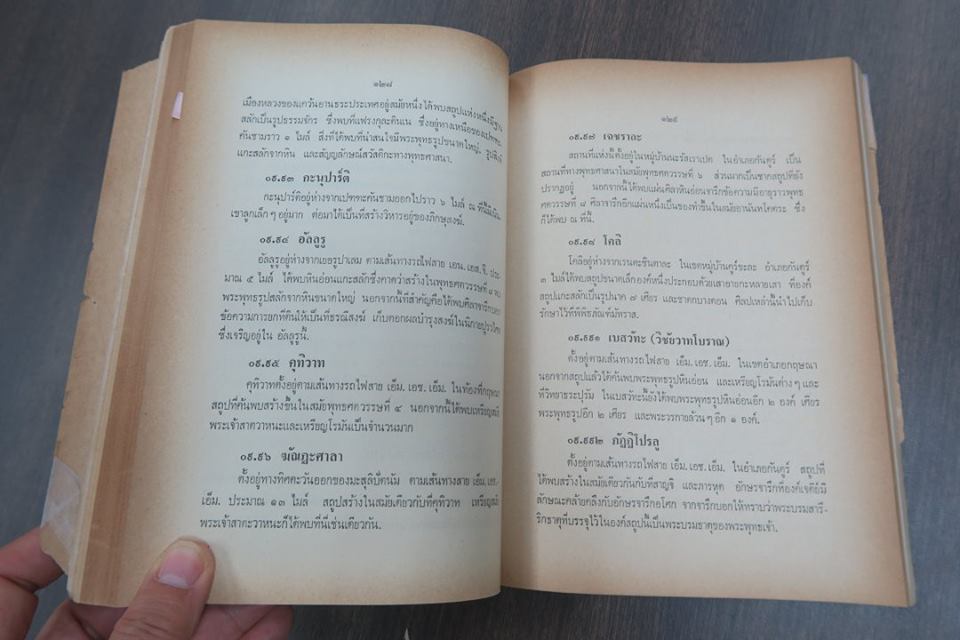 ๑๒๘
เมืองหลวงของแคว้นอานธระประเทศอยู่สมัยหนึ่ง ได้พบสถูปแห่งหนึ่งมีฐาน
สลักเป็นรูปธรรมจักร ซึ่งพบที่แฟรงกุละดินเน ซึ่งอยู่ทางเหนือของเปททะ
คันชามราว ๑ ไมล์ สิ่งที่ได้พบที่น่าสนใจมีพระพุทธรูปขนาดใหญ่, รูปสิงห์
แกะสลักจากหิน และสัญญลักษณ์สวัสดิกะทางพุทธศาสนา.
๑๙.๙๓ กะนุปาร์ติ
กะนุปาร์ติอยู่ห่างจากเปททะคันชามออกไปราว ๖ ไมล์ ณ ที่นี้มีเนิน
เขาลูกเล็กๆ อยู่มาก ต่อมาได้เป็นที่สร้างวิหารอยู่ของภิกษุสงฆ์.
๑๙.๙๔ อัลลูรู
อัลลูรูอยู่ห่างจากเยอรูปาเลม ตามเส้นทางรถไฟสาย เอน. เอส. จี. ประ-
มาณ ๕ ไมล์ ได้พบหินอ่อนแกะสลักซึ่งคาดว่าสร้างในพุทธศตวรรษที่ ๗ พบ
พระพุทธรูปสลักจากหินขนาดใหญ่ นอกจากนี้ที่สำคัญคือได้พบศิลาจารึกบอก
ข้อความการยกที่ดินให้เป็นที่ธรณีสงฆ์ เก็บดอกผลบำรุงสงฆ์ในนิกายปูรวไศล
ซึ่งเจริญอยู่ใน อัลลูรูนี้.
๑๙.๙๕ คุทิวาท
คุทิวาทตั้งอยู่ตามเส้นทางรถไฟสาย เอ็ม. เอช. เอ็ม. ในท้องที่กฤษณา
สถูปที่ค้นพบสร้างขึ้นในสมัยพุทธศตวรรษที่ ๔ นอกจากนี้ได้พบเหรียญสมัย
พระเจ้าสาตวาหนะและเหรียญโรมันเป็นจำนวนมาก
๑๙.๙๖ ฆัณฏะศาลา
ตั้งอยู่ทางทิศตะวันออกของมะสุลิปัตนัม ตามเส้นทางสาย เอ็ม. เอช.
เอ็ม. ประมาณ ๑๓ ไมล์ สถูปสร้างในสมัยเดียวกับที่คุทิวาท เหรียญสมัย
พระเจ้าสาตะวาหนะก็ได้พบที่นี่เช่นเดียวกัน.
๑๒๙
๑๙.๙๗ เจชราละ
สถานที่แห่งนี้ตั้งอยู่ในหมู่บ้านนะรัสเราเปต ในอำเภอกันตูร์ เป็น
สถานที่ทางพุทธศาสนาในสมัยพุทธศตวรรษที่ ๖ ส่วนมากเป็นซากสถูปที่ยัง
ปรากฏอยู่ นอกจากนี้ได้พบแผ่นศิลาหินอ่อนจารึกข้อความมีอายุราวพุทธ
ศตวรรษที่ ๘ ศิลาจารึกอีกแผ่นหนึ่งเป็นของทำขึ้นในสมัยอานันทโคตระ ซึ่ง
ก็ได้พบ ณ ที่นี้.
๑๙.๙๘ โคลิ
โคลิอยู่ห่างจากเรนตะชินตาละ ในเขตหมู่บ้านคูร์ชะละ อำเภอกันตูร์
๓ ไมล์ได้พบสถูปขนาดเล็กองค์หนึ่งซึ่งประกอบด้วยเสาอายกะหลายเสา ที่องค์
สถูปแกะสลักเป็นรูปนาค ๗ เศียร และชาดกบางตอน ศิลปเหล่านี้นำไปเก็บ
รักษาไว้ที่พิพิธภัณฑ์มัทราส.
๑๙.๙๙๑ เบสวัทะ (วิชัยวาทโบราณ)
ตั้งอยู่ตามเส้นทางรถไฟสาย เอ็ม. เอช. เอ็ม. ในเขตอำเภอกฤษณา
นอกจากสถูปแล้วได้ค้นพบพระพุทธรูปหินอ่อน และเหรียญโรมันต่างๆ และ
ที่วิทยาธระปุรัม ในเบสวัทะนี้ยังได้พบพระพุทธรูปหินอ่อนอีก ๒ องค์ เศียร
พระพุทธรูปอีก ๒ เศียร และพระวรกายล้วนๆ อีก ๑ องค์.
๑๙.๙๙๒ ภัฏฏิโปรลู
ตั้งอยู่ตามเส้นทางรถไฟสาย เอ็ม. เอช. เอ็ม. ในอำเภอกันตูร์ สถูปที่
ได้พบสร้างในสมัยเดียวกันกับที่สาญจิ และภารหุต อักษรจารึกที่องค์เจดีย์มี
ลักษณะคล้ายคลึงกับอักษรจารึกอโศก จากจารึกบอกให้ทราบว่าพระบรมสารี-
ริกธาตุที่บรรจุไว้ในองค์สถูปนี้เป็นพระบรมธาตุของพระพุทธเจ้า.